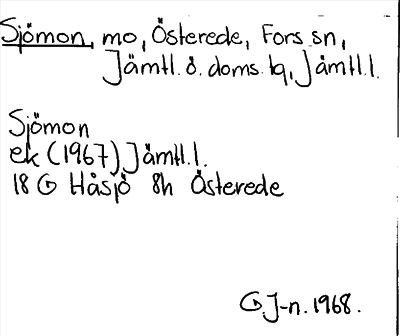 Sjömon, mo, Österede, Fors sn,
Jämtl. ö. doms. tg, Jämtl. l.
Sjömon
ek (1967) Jämtl. l.
18 G Håsjö 8h Österede
G. J-n. 1968.